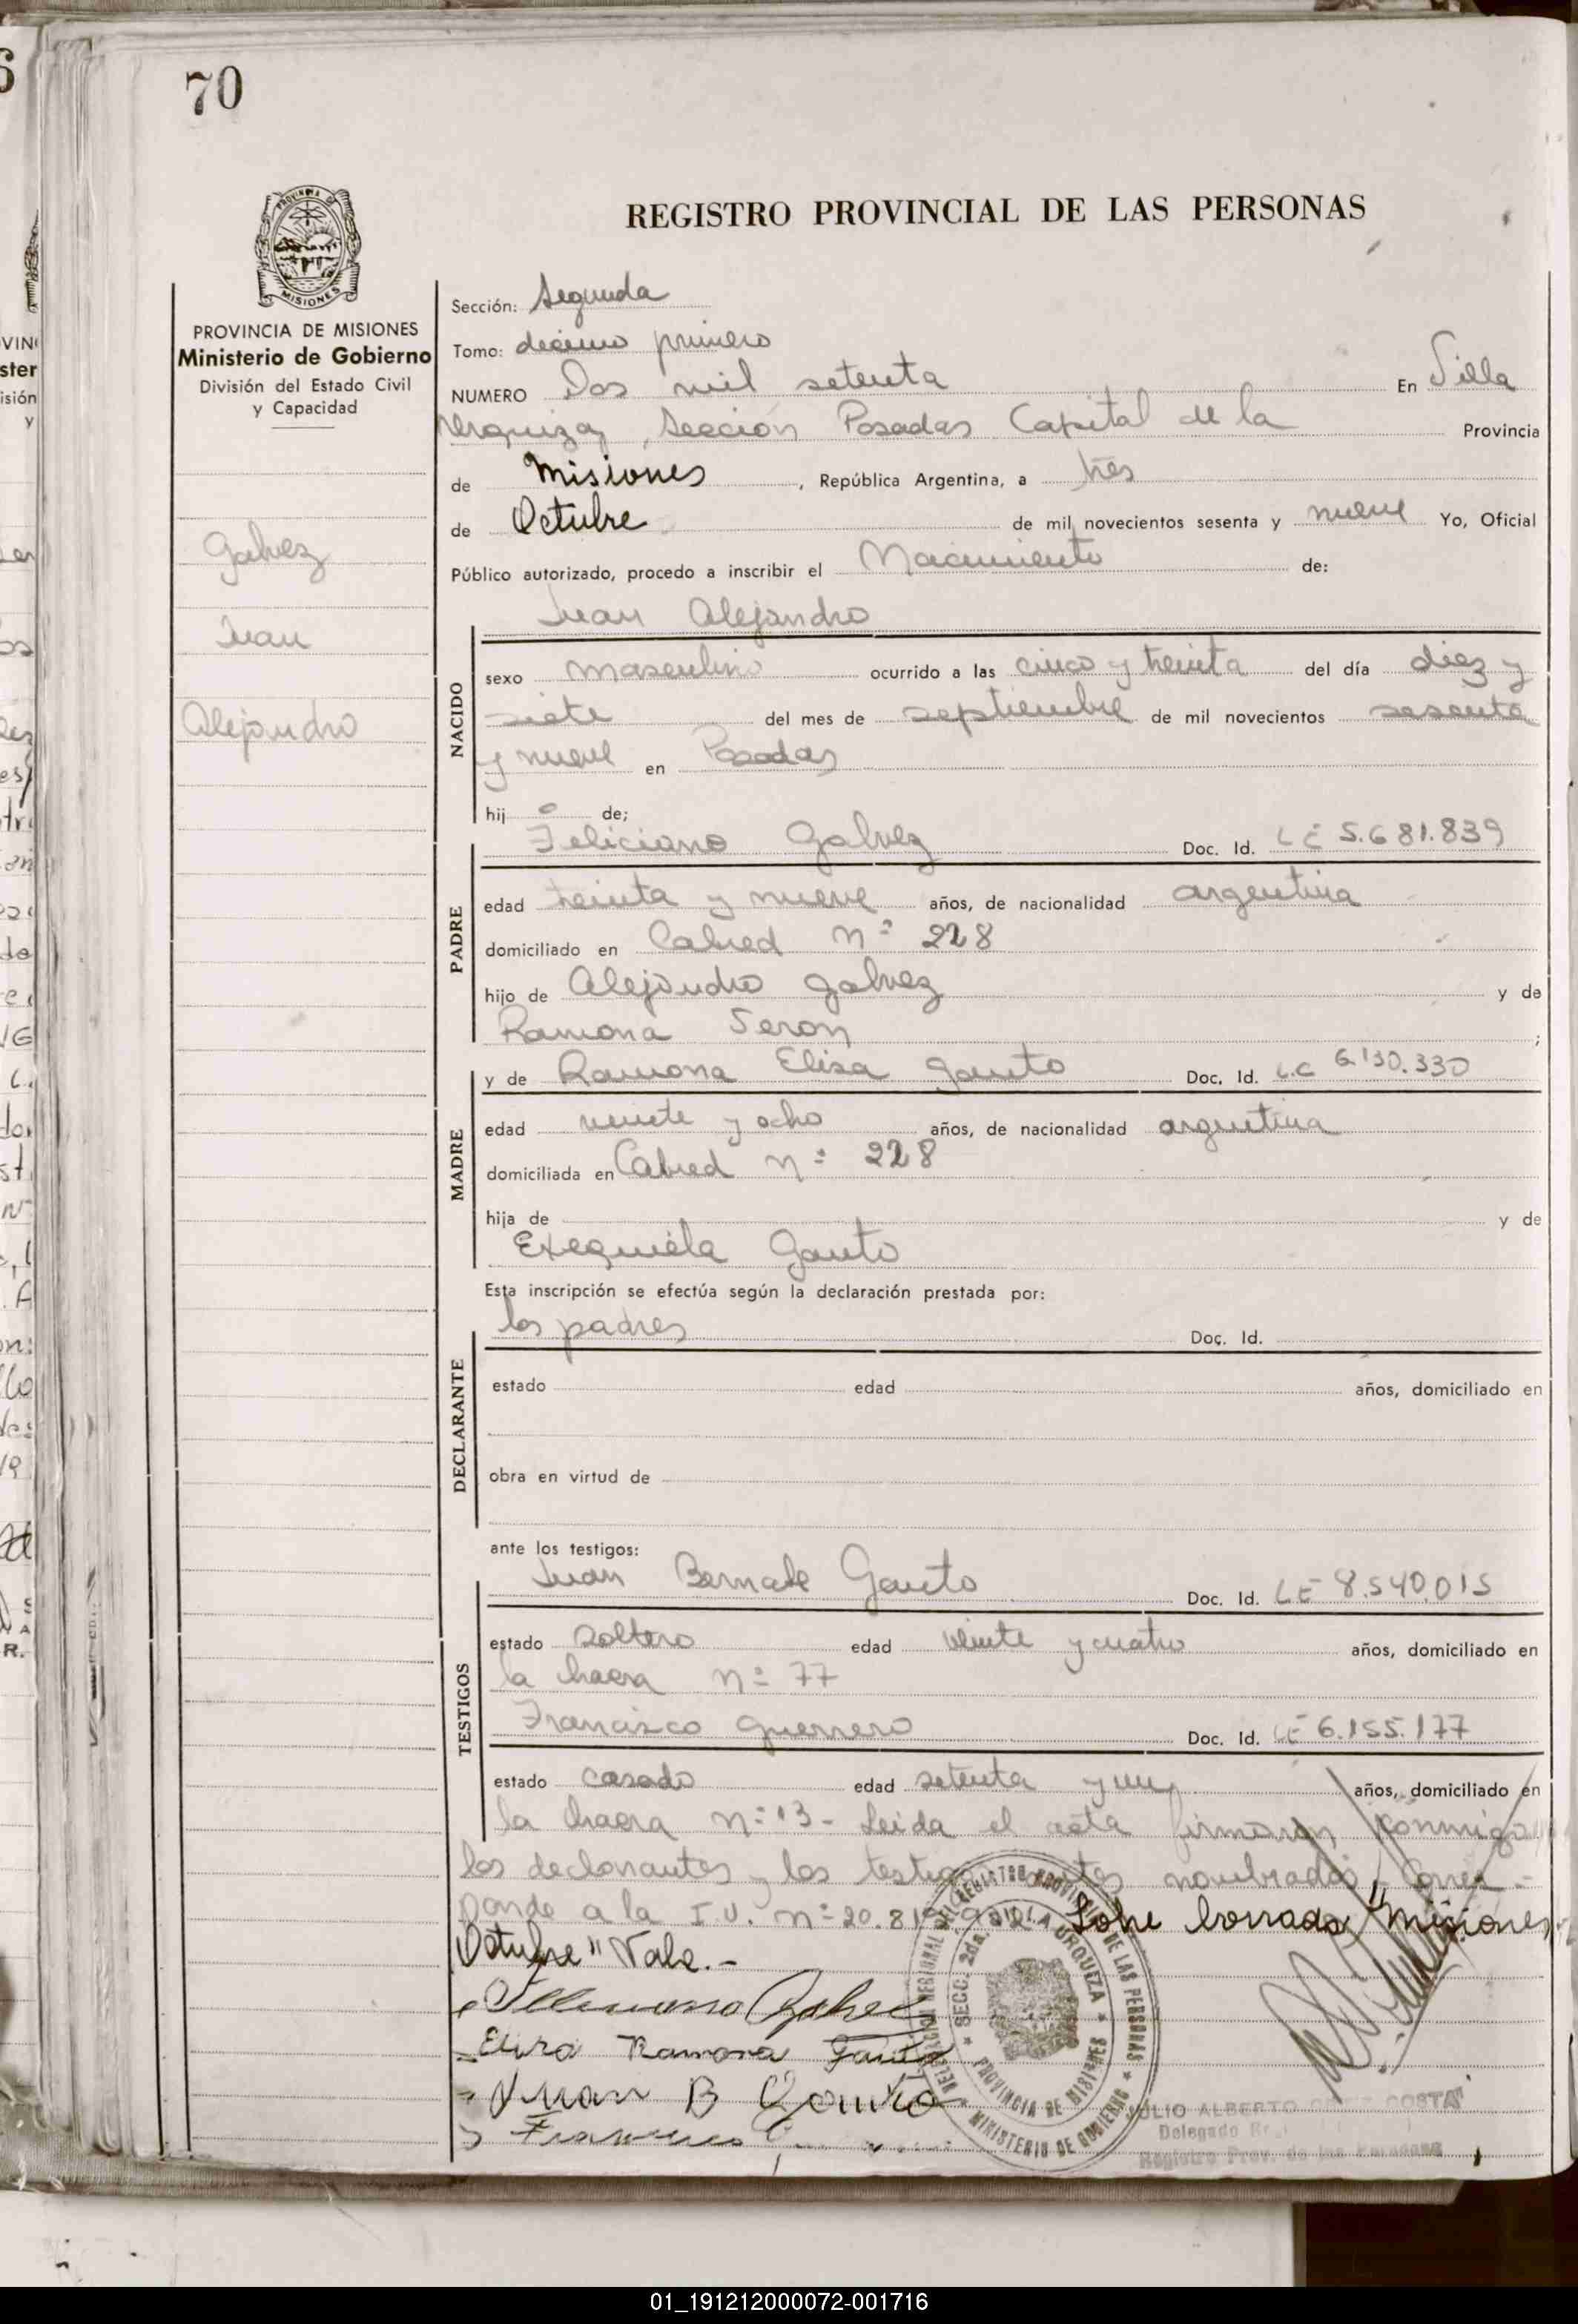 70
REGISTRO PROVINCIAL DE LAS PERSONAS
PROVINCIA DE MISIONES
Ministerio de Gobierno
División del Estado Civil
y Capacidad
Galvez
Juan
Alejandro
Sección: Segunda
Tomo: decimo primero
NUMERO Dos mil setenta En Villa
Urquiza, Sección Posadas Capital de la Provincia
de Misiones, República Argentina, a tres
de Octubre de mil novecientos sesenta y nueve Yo, Oficial
Público autorizado, procedo a inscribir el Nacimiento de:
Juan Alejandro
NACIDO
sexo masculino ocurrido a las cinco y treinta del día diez y
siete del mes de septiembre de mil novecientos sesenta
y nueve en Posadas
hij o de;
Feliciano Galvez Doc. Id. LE 5.681.839
PADRE
edad treinta y nueve años, de nacionalidad argentina
domiciliado en Cabred Nº 228
hijo de Alejandro Galvez y de
Ramona Seron ;
y de Ramona Elisa Gauto Doc. Id. L.C 6.130.330
MADRE
edad veinte y ocho años, de nacionalidad argentina
domiciliada en Cabred Nº 228
hija de y de
Exequiela Gauto
Esta inscripción se efectúa según la declaración prestada por:
los padres Doc. Id.
DECLARANTE
estado edad años, domiciliado en
obra en virtud de
ante los testigos:
Juan Bernabe Gauto Doc. Id. LE 8.540.015
TESTIGOS
estado soltero edad veinte y cuatro años, domiciliado en
la chacra Nº 77
Francisco Guerrero Doc. Id. LE 6.155.177
estado casado edad setenta y un años, domiciliado en
la chacra Nº 13 - Leida el acta firmaron conmigo
los declarantes y los testigos nombrados, Corres-
ponde a la I.U. Nº 20.819. Sobre borrado "Misiones,
Octubre" Vale.-
Galvez
Elisa Ramona Gauto
Juan B Gauto
Francisco
DELEGACION REGIONAL DEL REGISTRO PROVINCIAL DE LAS PERSONAS
MINISTERIO DE GOBIERNO
SECC. 2da. VILLA URQUIZA
PROVINCIA DE MISIONES
JULIO ALBERTO COSTA
Delegado
Registro Prov. de las Personas
01_191212000072-001716